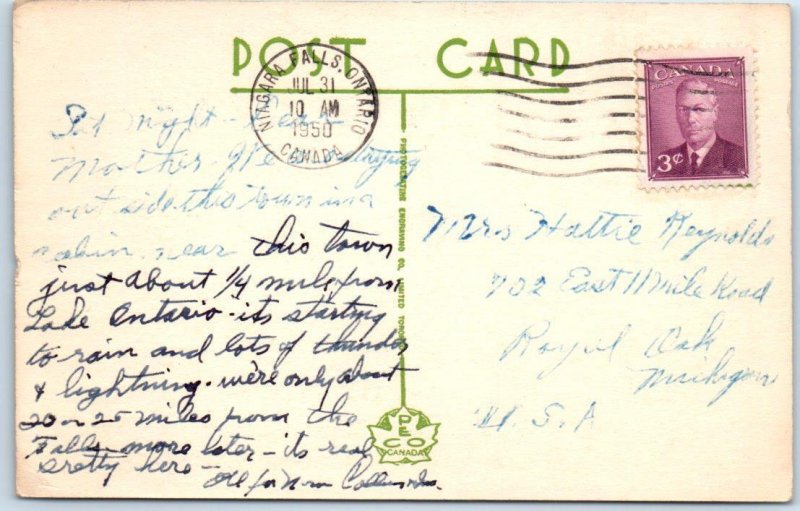 POST CARD
NIAGARA FALLS, ONTARIO
JUL 31
10 AM
1950
CANADA
CANADA
POSTES POSTAGE
3¢
Sat night
Mother
out side this town in a
cabin near this town
just about 1/4 mile from
Lake Ontario - its starting
to rain and lots of thunder
& lightning. we're only about
20 or 25 miles from the
Falls more later - its real
pretty here -
PHOTOGELATINE ENGRAVING CO. LIMITED TORONTO
PECO
CANADA
Mrs Hattie Reynolds
702 East 11 Mile Road
Royal Oak
Michigan
U.S.A